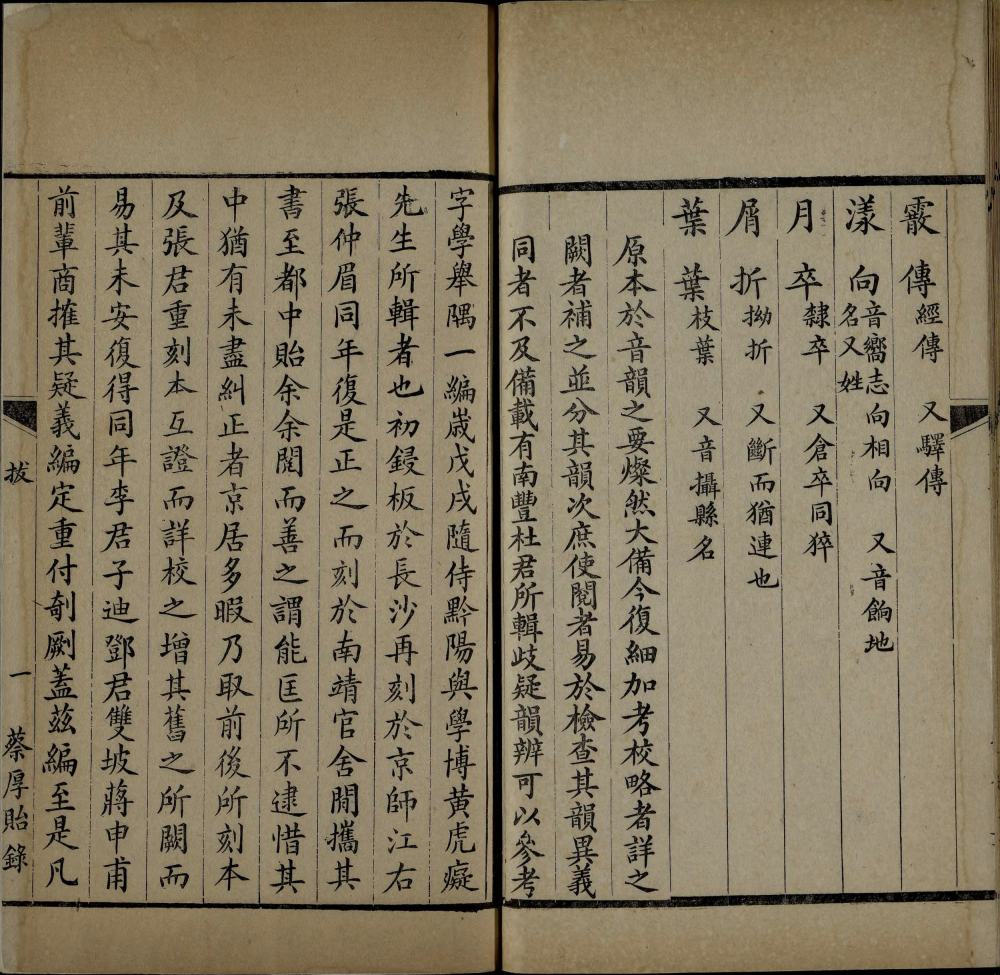 霰　傳經傳　又驛傳
漾　向音嚮志向相向　又音餉地名又姓
月　卒隸卒　又倉卒同猝
屑　折拗折　又斷而猶連也
葉　葉枝葉　又音攝縣名
原本於音韻之要燦然大備今復細加考校略者詳之
闕者補之並分其韻次庶使閱者易於檢查其韻異義
同者不及備載有南豐杜君所輯歧疑韻辨可以參考
字學舉隅一編嵗戊戌隨侍黔陽與學博黄虎癡
先生所輯者也初鋟板於長沙再刻於京師江右
張仲眉同年復是正之而刻於南靖官舍閒攜其
書至都中貽余余閱而善之謂能匡所不逮惜其
中猶有未盡糾正者京居多暇乃取前後所刻本
及張君重刻本互證而詳校之增其舊之所闕而
易其未安復得同年李君子迪鄧君雙坡蔣申甫
前輩商搉其疑義編定重付剞劂蓋茲編至是凡
拔　一　蔡厚貽錄